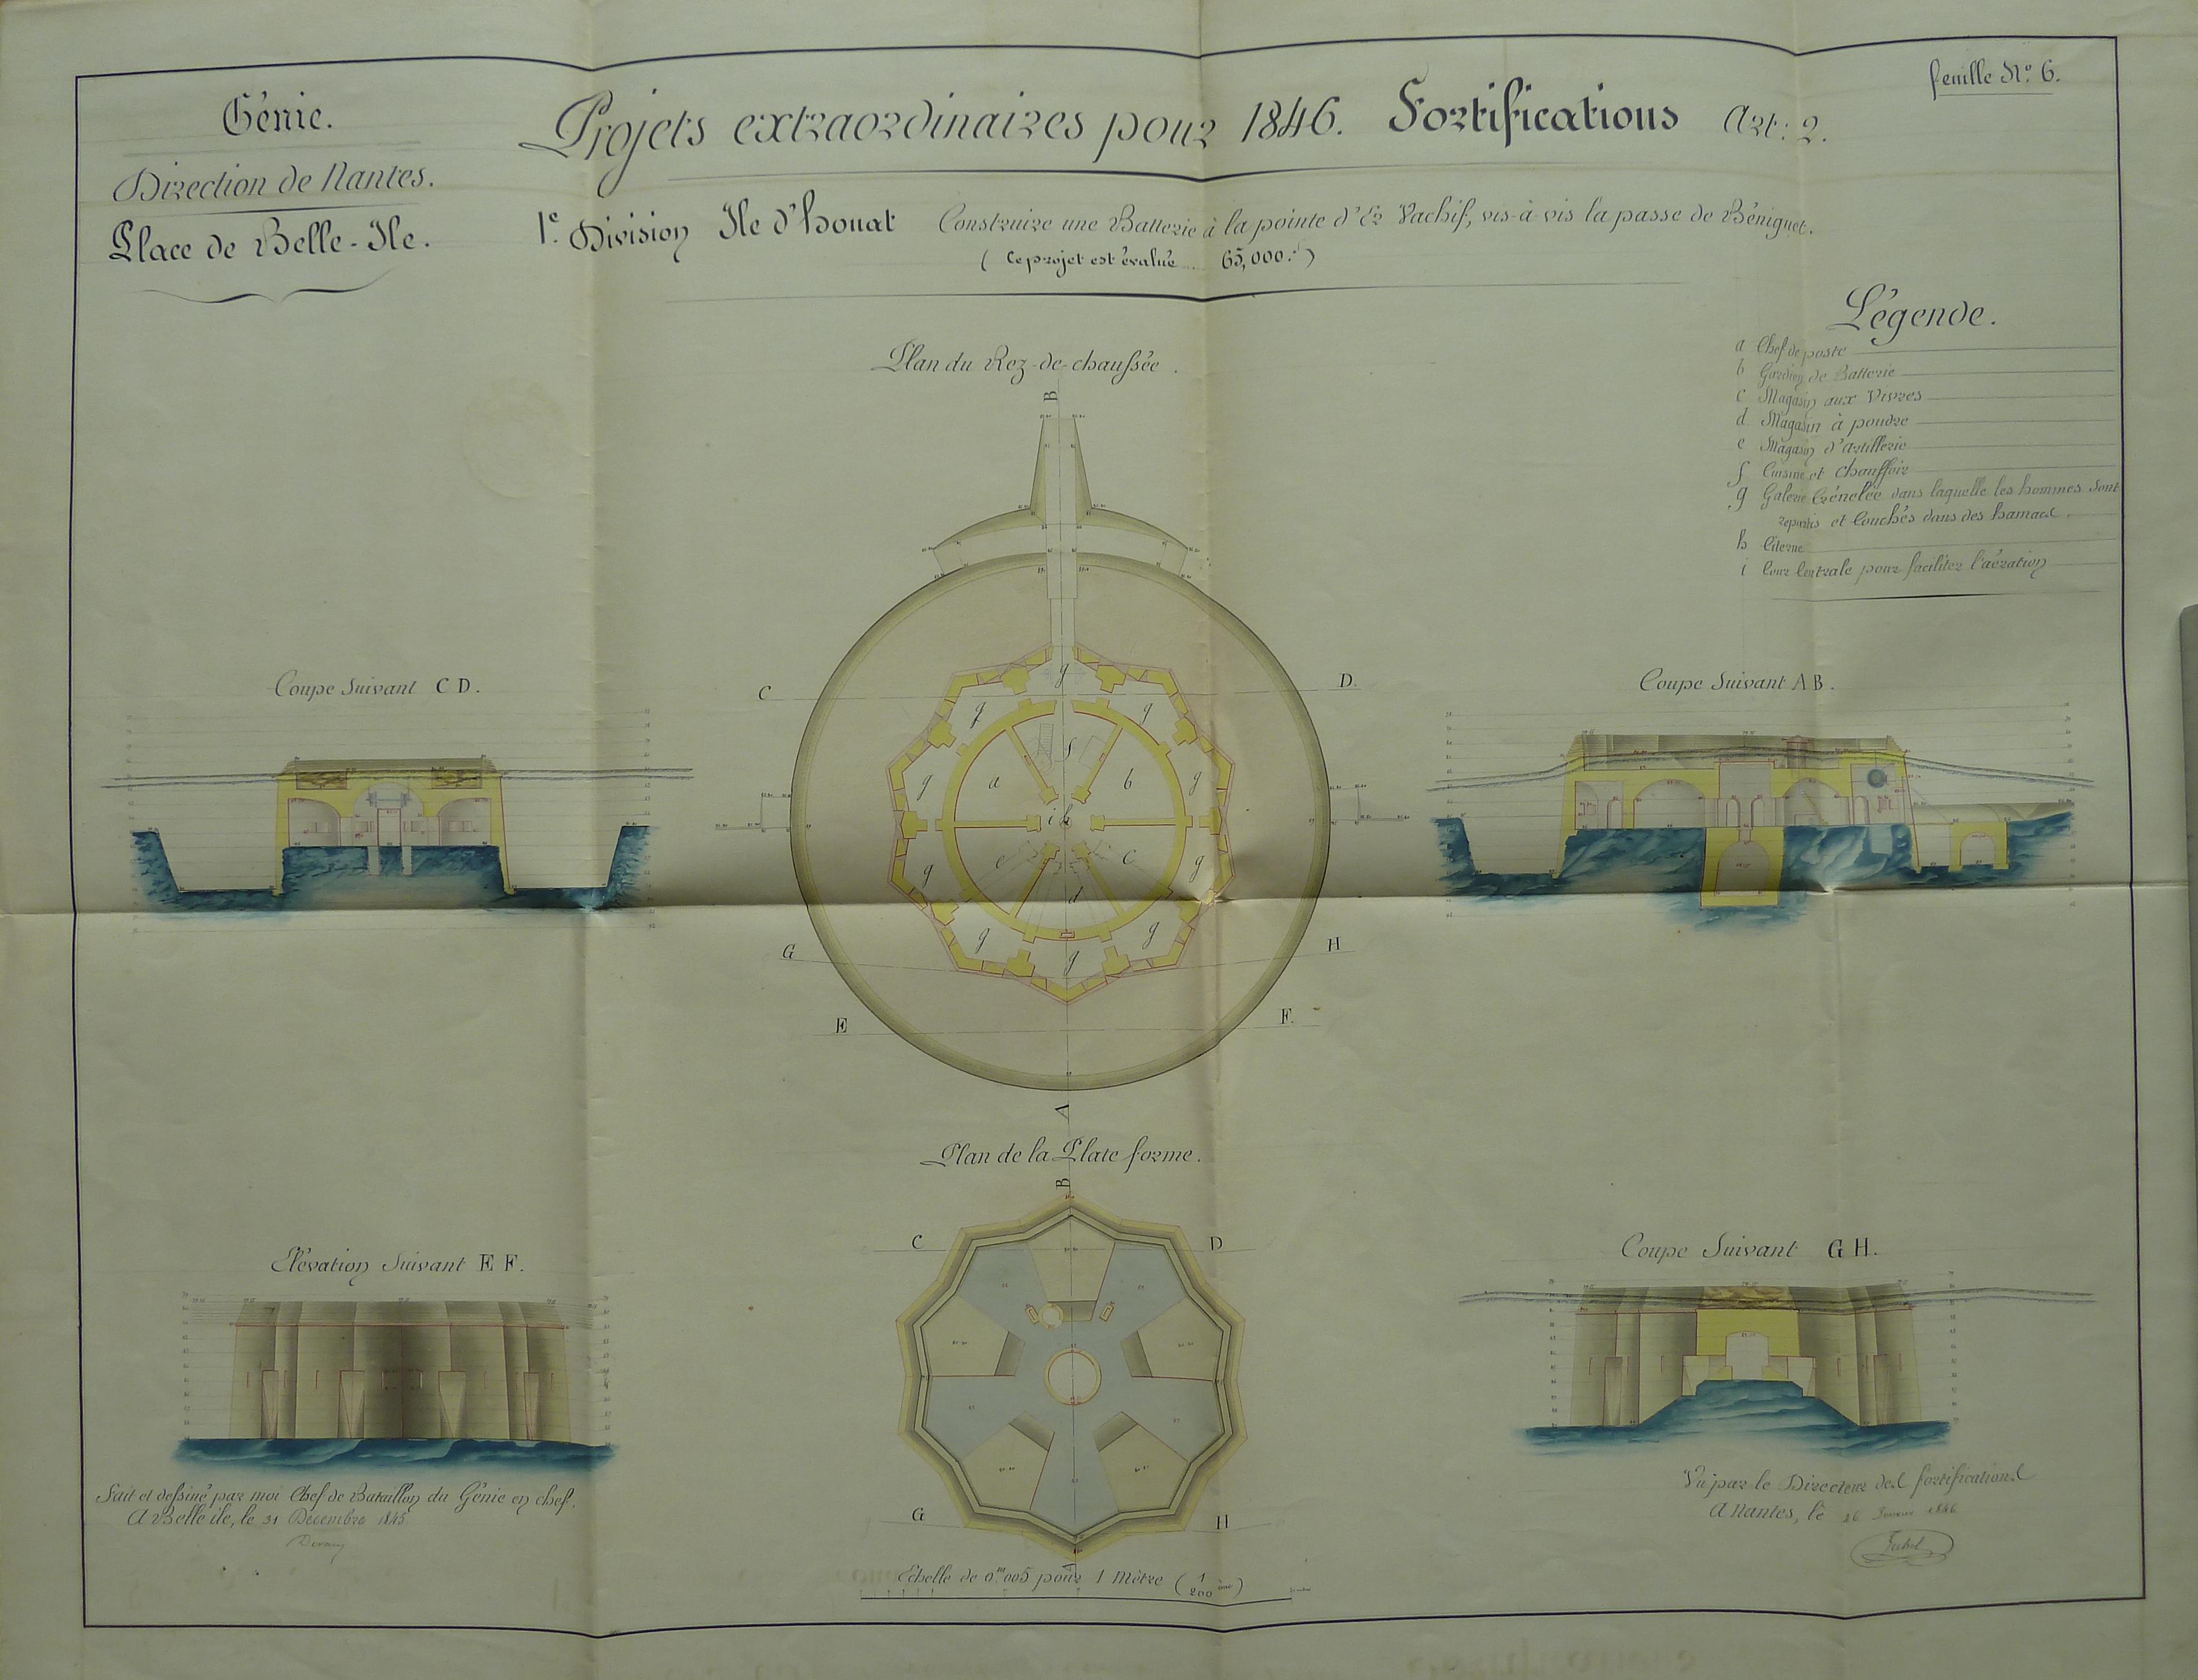 feuille N.º 6.
Génie.
Direction de Nantes.
Place de Belle-Ile.
Projets extraordinaires pour 1846. Fortifications Art: 2.
1.e Division Ile d'houat Construire une Batterie à la pointe d'Er Vachif, vis-à-vis la passe de Béniguet.
( Ce projet est évalué 65,000.f )
Légende.
a Chef de poste
b Gardien de Batterie
c Magasin aux Vivres
d Magasin à poudre
e Magasin d'artillerie
f Cuisine et Chauffoir
g Galerie Crénelée dans laquelle les hommes sont
repartis et Couchés dans des hamacs.
h Citerne
i Cour Centrale pour faciliter l'aération
Plan du Rez-de-chaussée.
B
C
D.
g
g
g
f
g
a
b
g
i
h
g
e
c
g
d
g
g
g
G
H
E
F.
A
Coupe Suivant C D.
Coupe Suivant A B.
Plan de la Plate forme.
B
C
D
G
H
A
Elévation Suivant E F.
Coupe Suivant G H.
Fait et dessiné par moi Chef de Bataillon du Génie en chef,
A Belle ile, le 31 Décembre 1845
Vu par le Directeur des fortifications
A Nantes, le 26 Janvier 1846
Echelle de 0.m005 pour 1 Mètre (1/200ème)